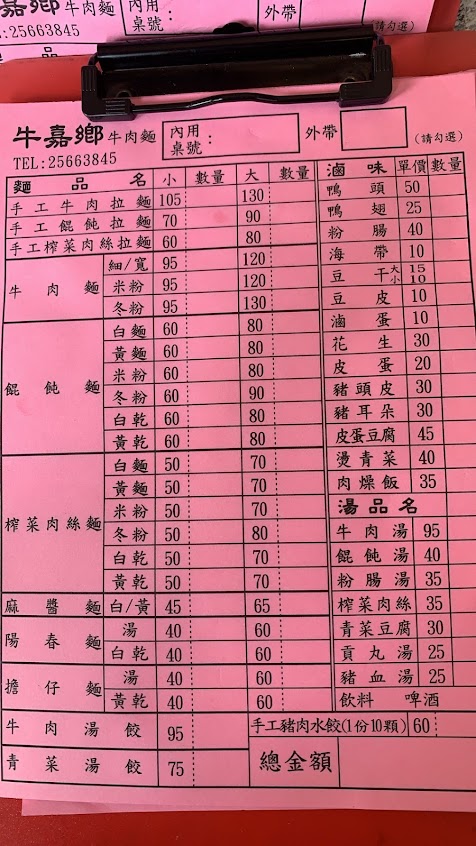 嘉鄉 牛肉麵 內用: 桌號: 外帶 (請勾選)
TEL:25663845
牛嘉鄉 牛肉麵 內用: 桌號: 外帶 (請勾選)
TEL:25663845
麵品名 小 數量 大 數量
手工牛肉拉麵 105 130
手工餛飩拉麵 70 90
手工榨菜肉絲拉麵 60 80
牛肉麵 細/寬 95 120
米粉 95 120
冬粉 95 130
餛飩麵 白麵 60 80
黃麵 60 80
米粉 60 80
冬粉 60 90
白乾 60 80
黃乾 60 80
榨菜肉絲麵 白麵 50 70
黃麵 50 70
米粉 50 70
冬粉 50 80
白乾 50 70
黃乾 50 70
麻醬麵 白/黃 45 65
陽春麵 湯 40 60
白乾 40 60
擔仔麵 湯 40 60
黃乾 40 60
牛肉湯餃 95
青菜湯餃 75
滷味 單價 數量
鴨頭 50
鴨翅 25
粉腸 40
海帶 10
豆干 大 15 小 10
豆皮 10
滷蛋 10
花生 30
皮蛋 20
豬頭皮 30
豬耳朵 30
皮蛋豆腐 45
燙青菜 40
肉燥飯 35
湯品名
牛肉湯 95
餛飩湯 40
粉腸湯 35
榨菜肉絲 35
青菜豆腐 30
貢丸湯 25
豬血湯 25
飲料 啤酒
手工豬肉水餃(1份10顆) 60
總金額